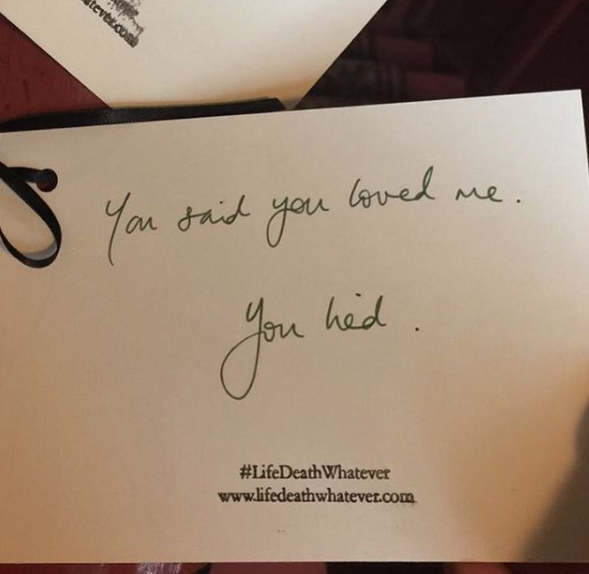 atever.com
You said you loved me.
You lied.
#LifeDeathWhatever
www.lifedeathwhatever.com